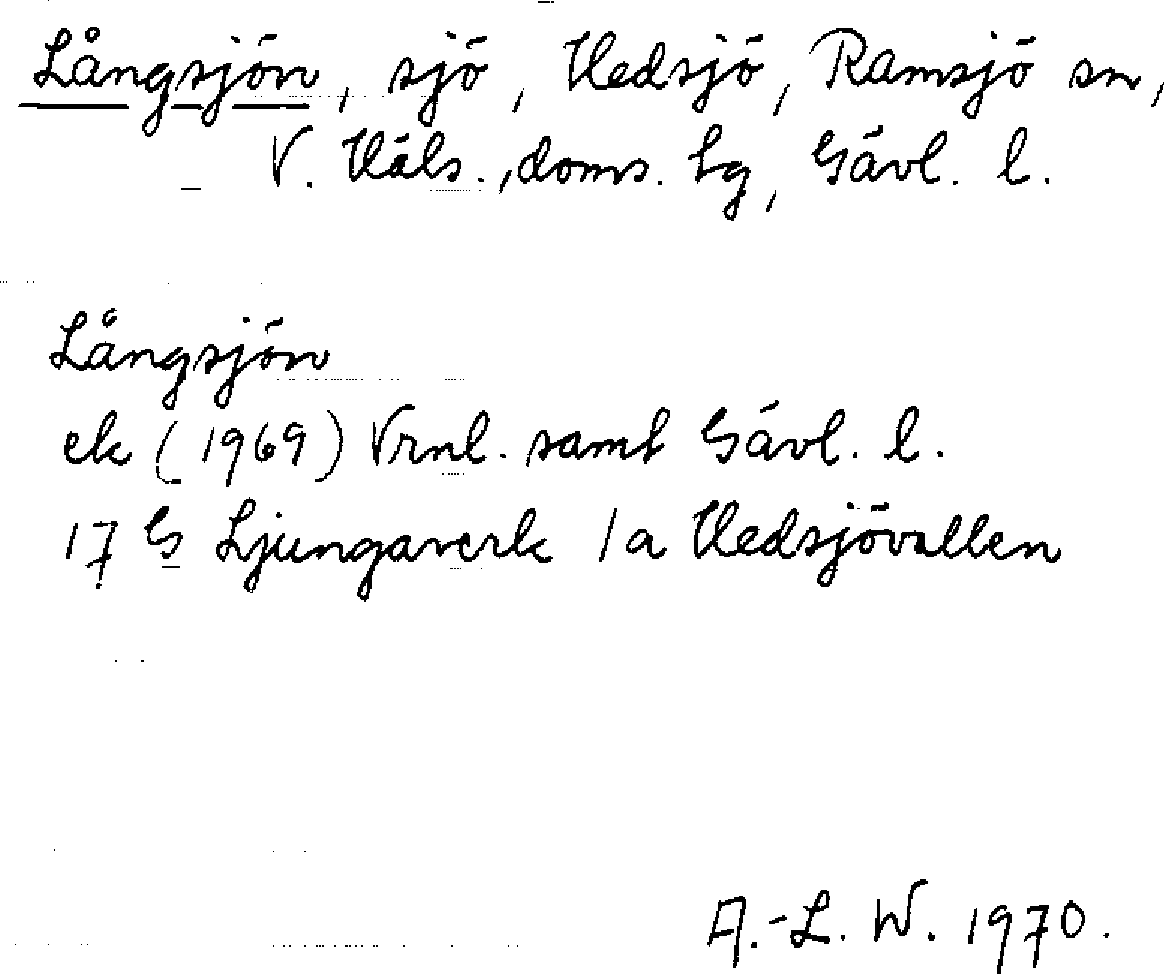 Långsjön, sjö, Hedsjö, Ramsjö sn,
V. Häls., doms. hg, Gävl. l.
Långsjön
ek (1969) Vrnl. samt Gävl. l.
17 G Ljungaverk 1a Hedsjövallen
A.-L. W. 1970.